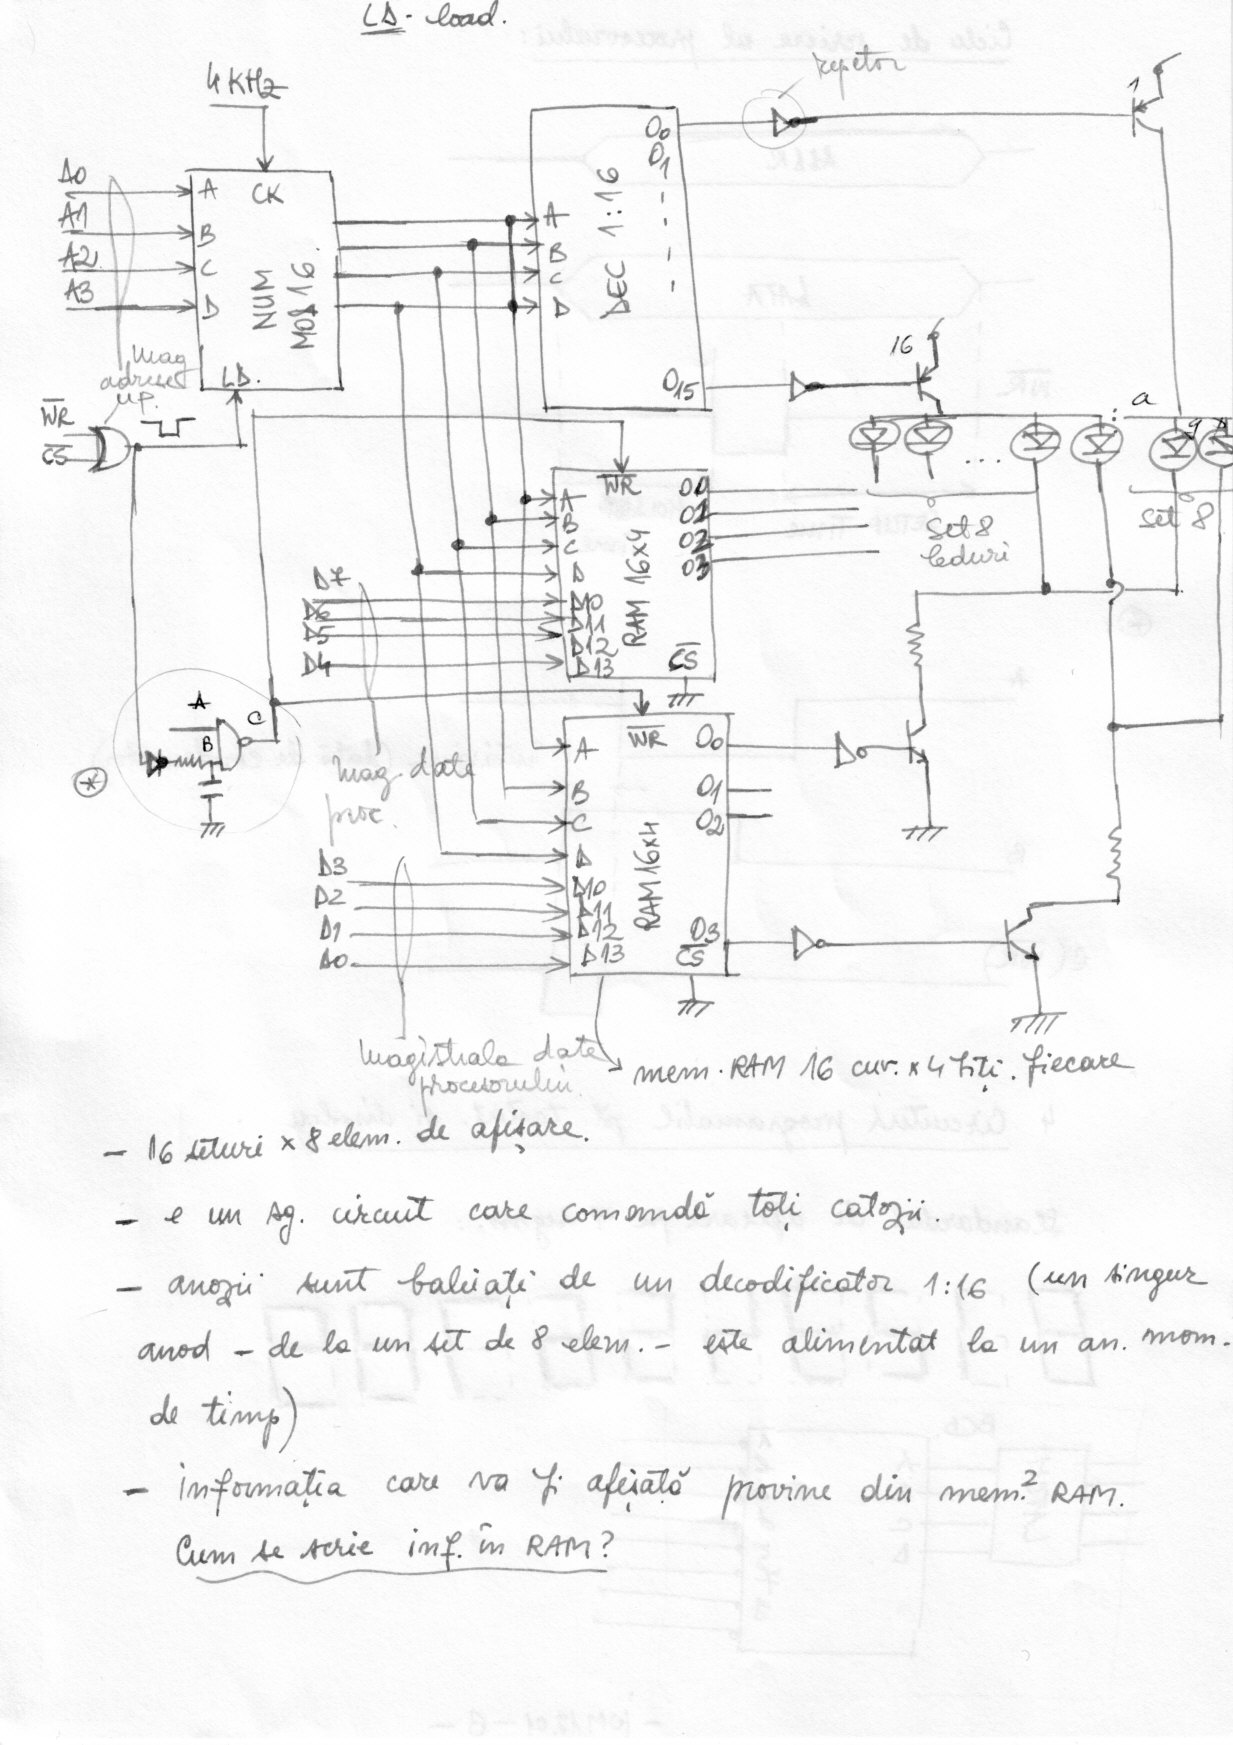 LD - load.
4 KHz
repetor
1
A0
A1
A2
A3
A
B
C
D
CK
NUM
MOD 16
LD.
mag
adrese
μp.
WR
CS
DEC 1:16
A
B
C
D
O0
O1
O15
16
a
g
Set 8
leduri
Set 8
WR
A
B
C
D
D10
D11
D12
D13
RAM 16x4
O0
O1
O2
O3
CS
D7
D6
D5
D4
A
B
C
*
mag. date
proc.
WR
A
B
C
D
D10
D11
D12
D13
RAM 16x4
O0
O1
O2
O3
CS
D3
D2
D1
D0
Magistrala date
procesorului
mem. RAM 16 cuv. x 4 biți. fiecare
- 16 seturi x 8 elem. de afișare.
- e un sg. circuit care comandă toți catozii.
- anozii sunt baleiați de un decodificator 1:16 (un singur
anod - de la un set de 8 elem. - este alimentat la un an. mom.
de timp)
- informația care va fi afișată provine din mem.? RAM.
Cum se scrie inf. în RAM?